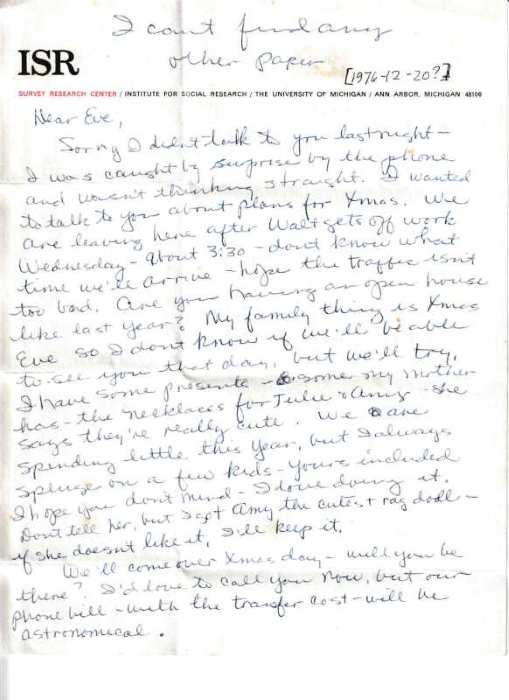 I can't find any
other paper
ISR
[1976-12-20?]
SURVEY RESEARCH CENTER / INSTITUTE FOR SOCIAL RESEARCH / THE UNIVERSITY OF MICHIGAN / ANN ARBOR, MICHIGAN 48106
Dear Eve,
Sorry I didn't talk to you last night –
I was caught by surprise by the phone
and wasn't thinking straight. I wanted
to talk to you about plans for Xmas. We
are leaving here after Walt gets off work
Wednesday – about 3:30 – don't know what
time we'll arrive – hope the traffic isn't
too bad. Are you having an open house
like last year? My family thing is Xmas
Eve so I don't know if we'll be able
to see you that day, but we'll try.
I have some presents – some my mother
has – the necklaces for Julie & Amy – she
says they're really cute. We are
spending little this year, but I always
spluge on a few kids – yours included
I hope you don't mind – I love doing it.
Don't tell her, but I got Amy the cutest rag doll –
if she doesn't like it, I'll keep it.
We'll come over Xmas day – will you be
there? I'd love to call you now, but our
phone bill – with the transfer cost – will be
astronomical.